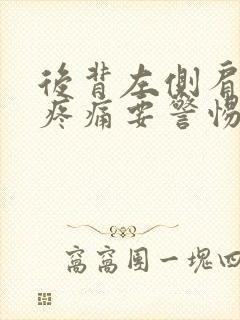 後背左側肩
疼痛要警惕
窩窩團一塊四